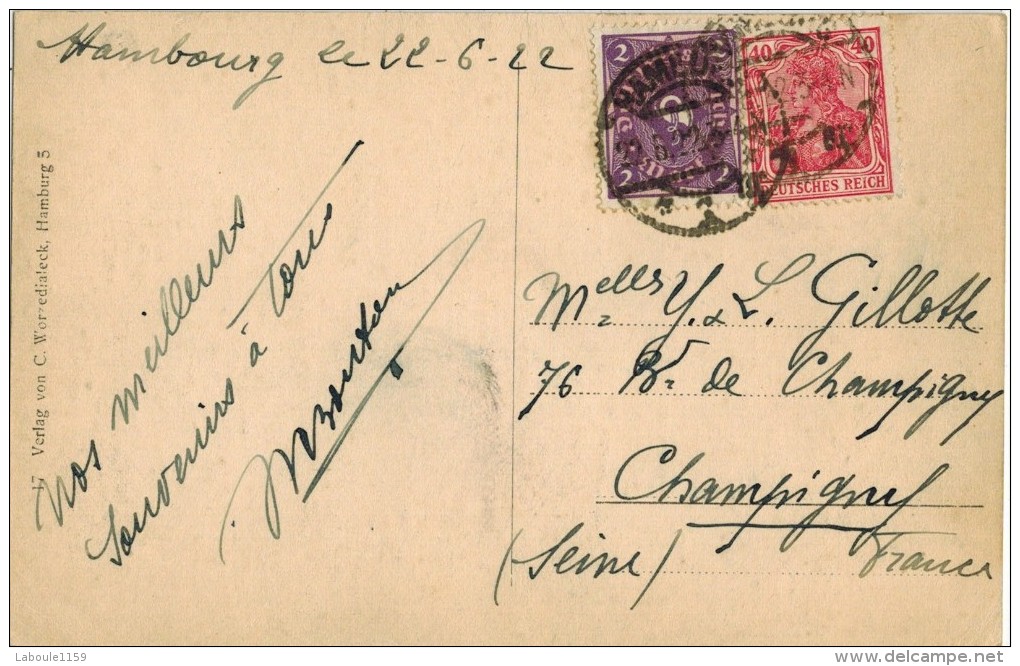 Hambourg le 22-6-22
Nos meilleurs
Souvenirs à tous
17 Verlag von C. Worzedialeck, Hamburg 5
2 2
2 2
40 40
DEUTSCHES REICH
HAMBURG
Melles Y. & L. Gillotte
76 Bd de Champigny
Champigny
(Seine) France
Laboule1159
www.delcampe.net